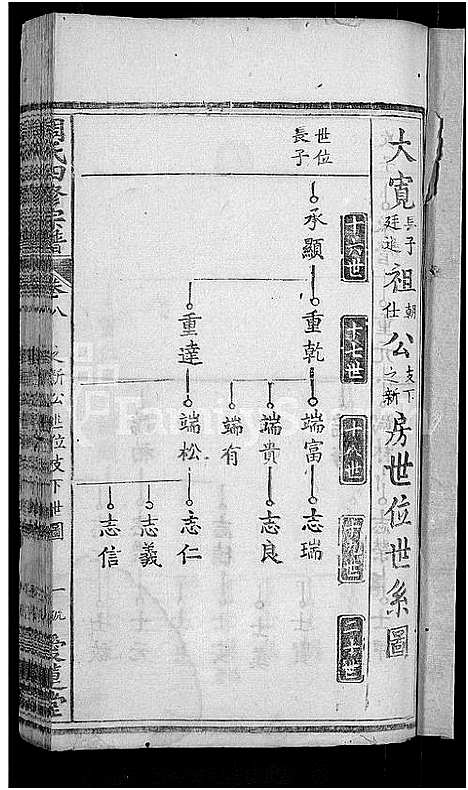 大寬長子廷進祖朝仕公支下之新房世位世系圖
十六世
十七世
十八世
十九世
二十世
世位長子
承顯
重乾
重達
端富
端貴
端有
端松
志瑞
志良
志仁
志義
志信
周氏四修宗譜
卷八
之新公世位支下世圖
愛蓮堂